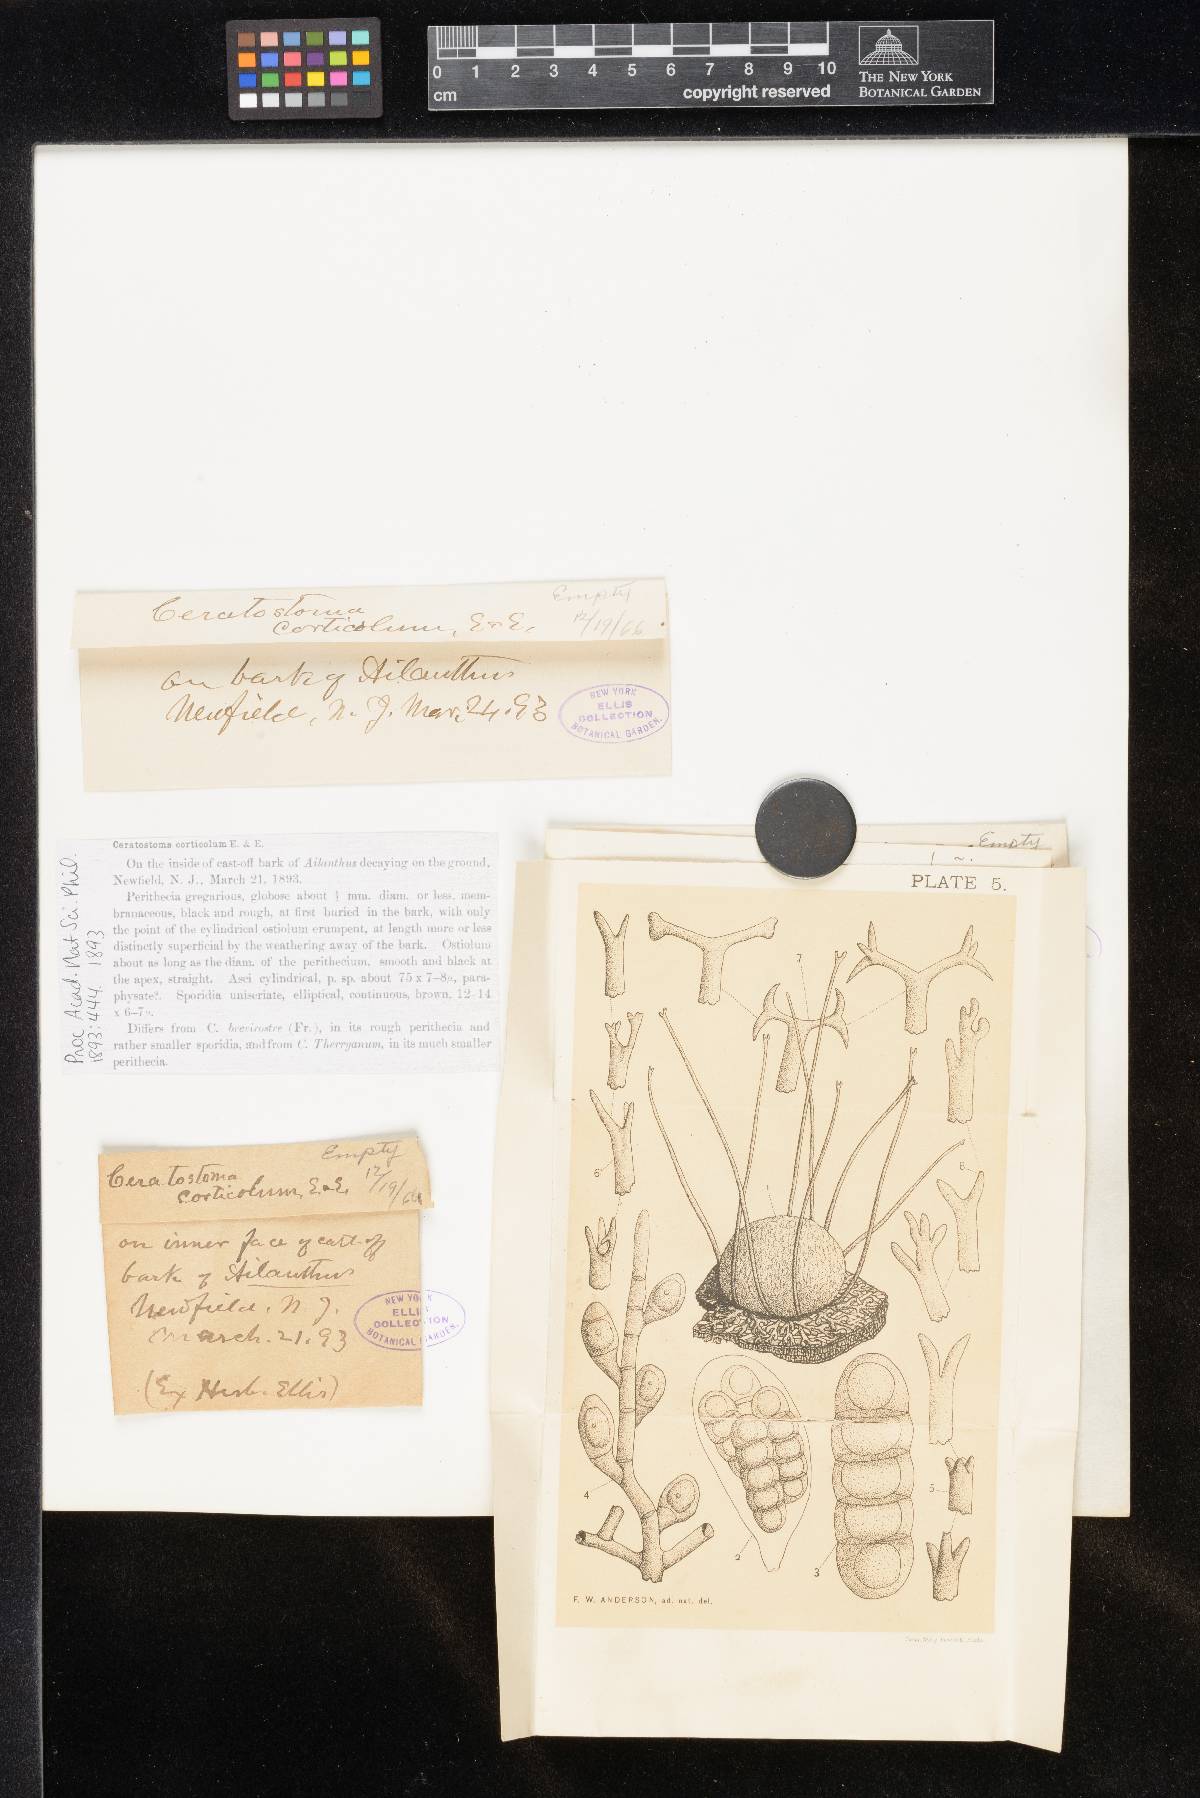 0 1 2 3 4 5 6 7 8 9 10
cm
copyright reserved
THE NEW YORK
BOTANICAL GARDEN
Empty
12/19/66
Ceratostoma
corticolum, E & E.
on bark of Ailanthus
Newfield, N. J. Mar. 24. 93
NEW YORK
ELLIS
COLLECTION
BOTANICAL GARDEN.
Proc Acad. Nat Sci. Phil.
1893:444. 1893
Ceratostoma corticolum E. & E.
On the inside of cast-off bark of Ailanthus decaying on the ground,
Newfield, N. J., March 21, 1893.
Perithecia gregarious, globose about ½ mm. diam. or less, mem-
branaceous, black and rough, at first buried in the bark, with only
the point of the cylindrical ostiolum erumpent, at length more or less
distinctly superficial by the weathering away of the bark. Ostiolum
about as long as the diam. of the perithecium, smooth and black at
the apex, straight. Asci cylindrical, p. sp. about 75 x 7–8µ, para-
physate?. Sporidia uniseriate, elliptical, continuous, brown, 12–14
x 6–7µ.
Differs from C. brevirostre (Fr.), in its rough perithecia and
rather smaller sporidia, and from C. Therryanum, in its much smaller
perithecia.
Empty
12/19/66
Ceratostoma
corticolum, E & E.
on inner face of cast-off
bark of Ailanthus
Newfield, N. J.
March. 21. 93
(Ex Herb. Ellis)
NEW YORK
ELLIS
COLLECTION
BOTANICAL GARDEN.
Empty
PLATE 5.
7
6
8
1
4
5
2
3
F. W. ANDERSON, ad. nat. del.